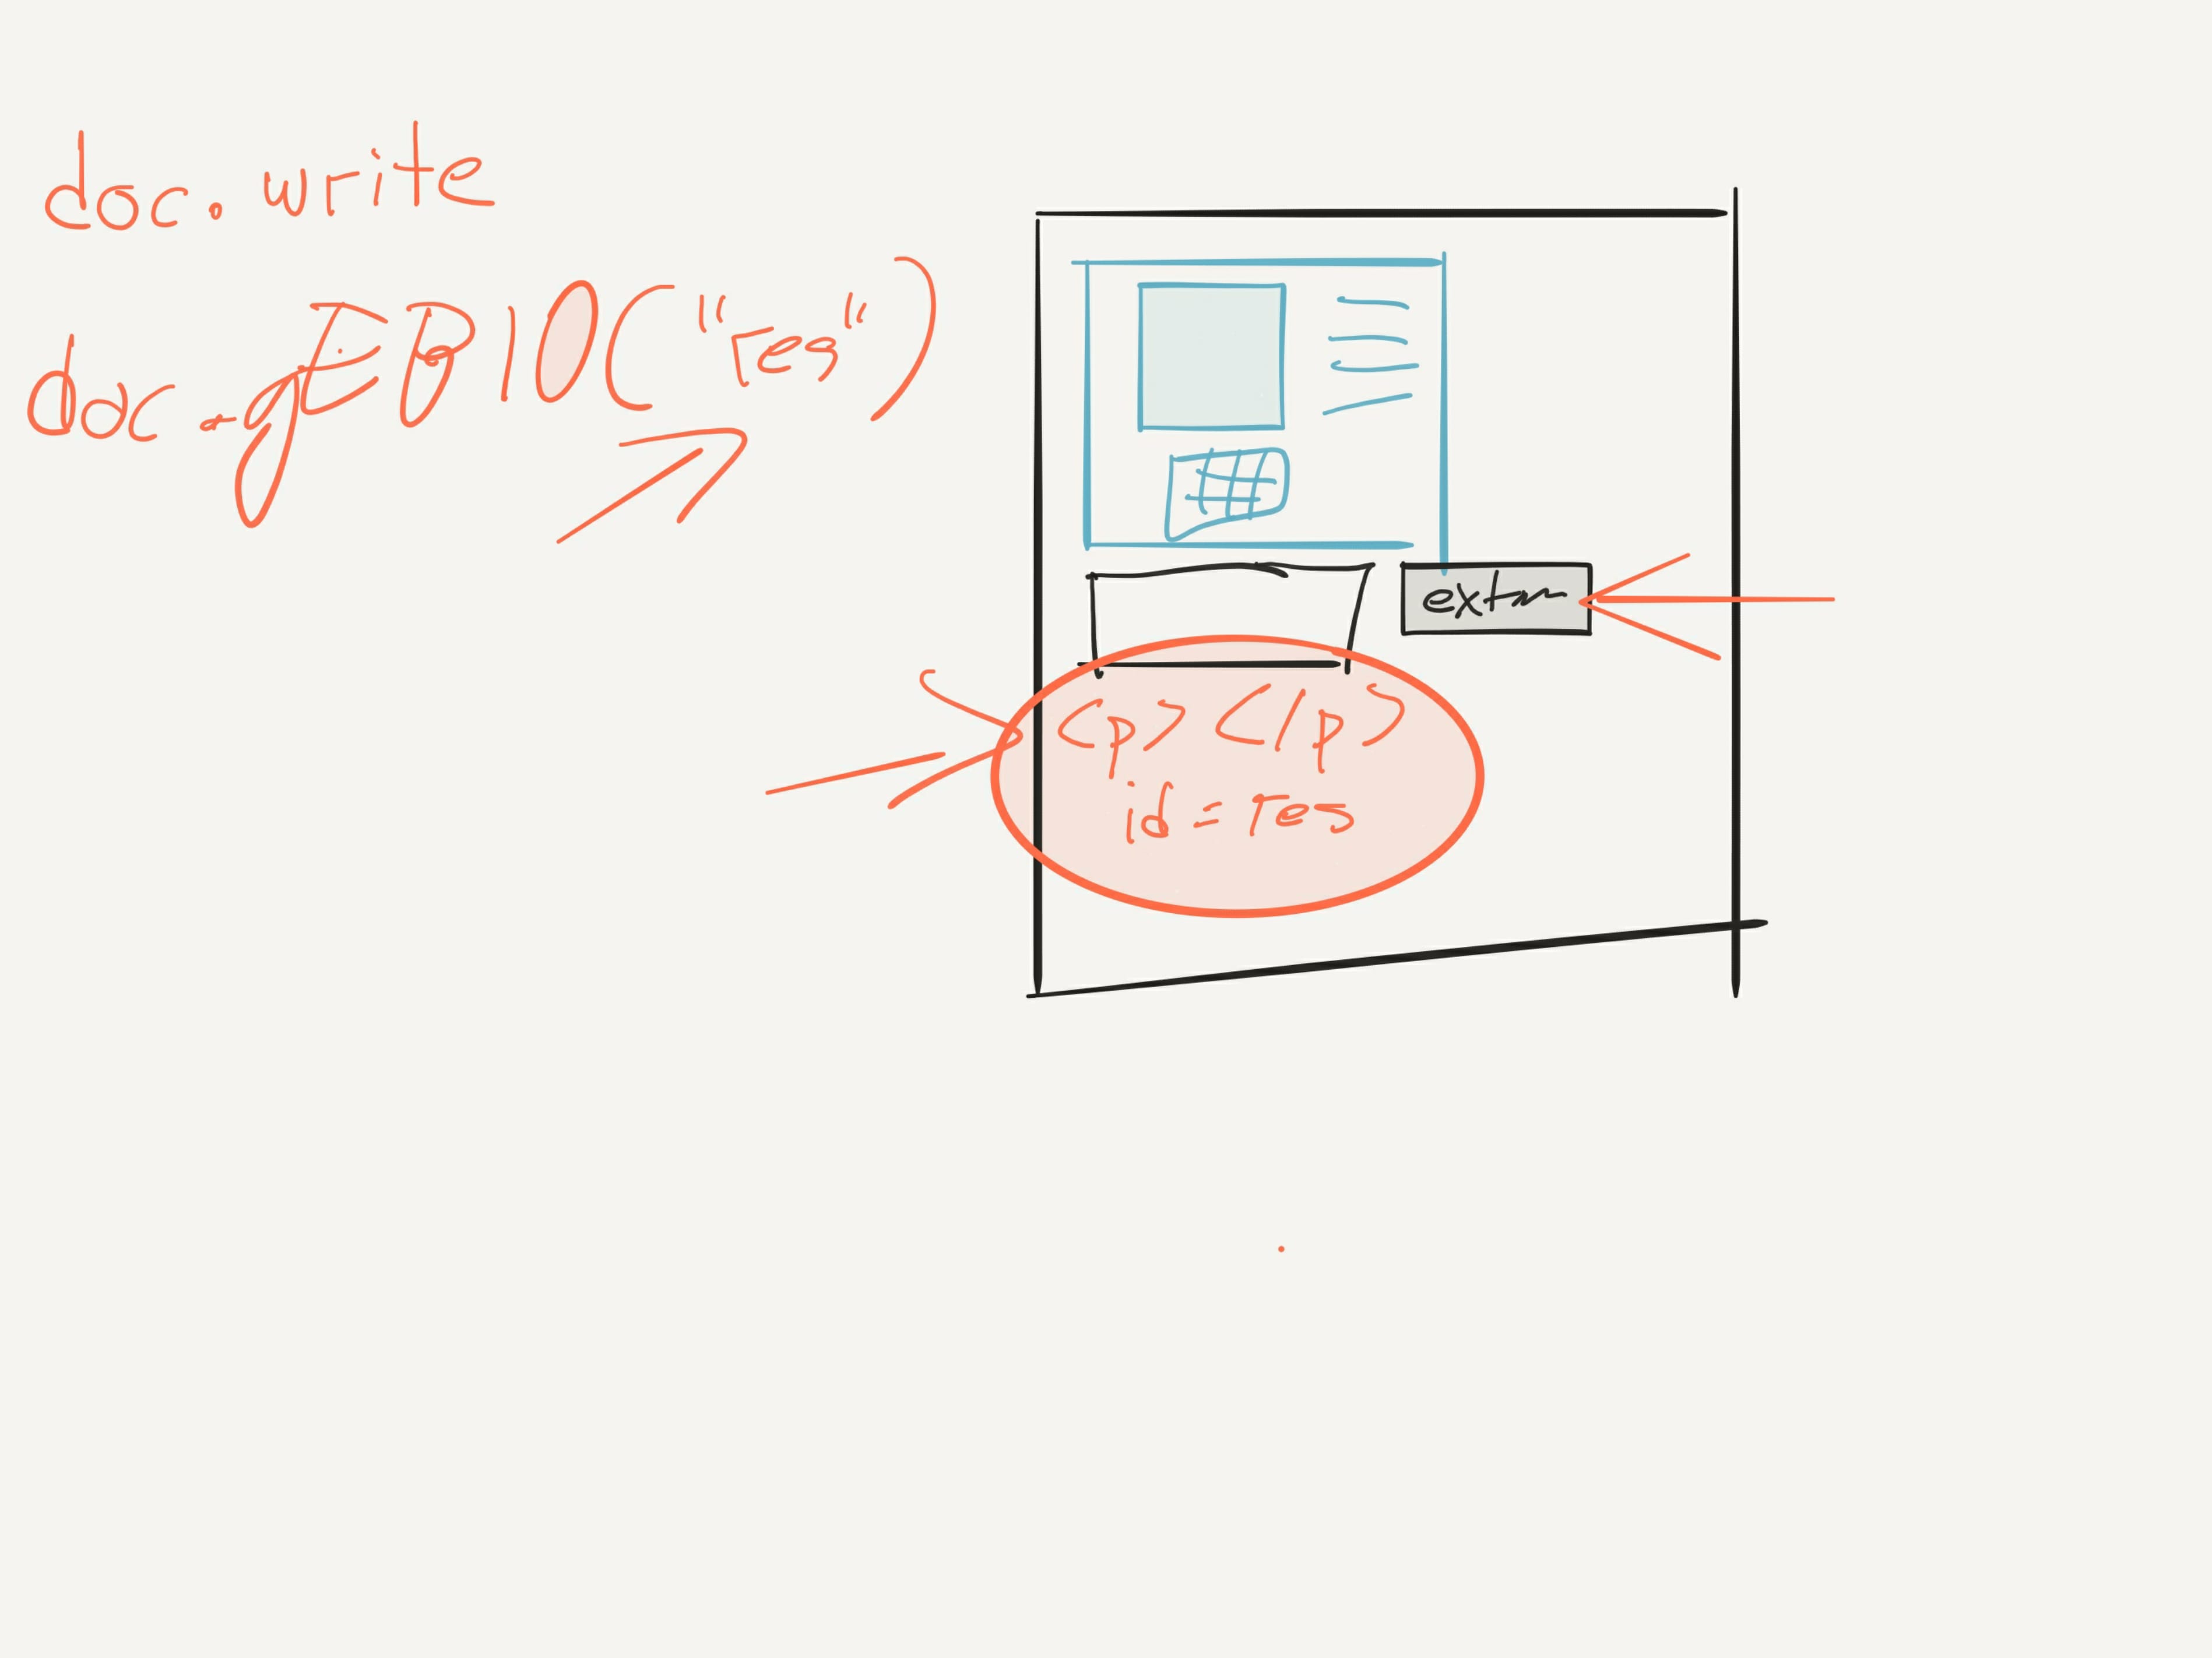 doc.write
doc.gEBID("res")
extra
<p> </p>
id = res